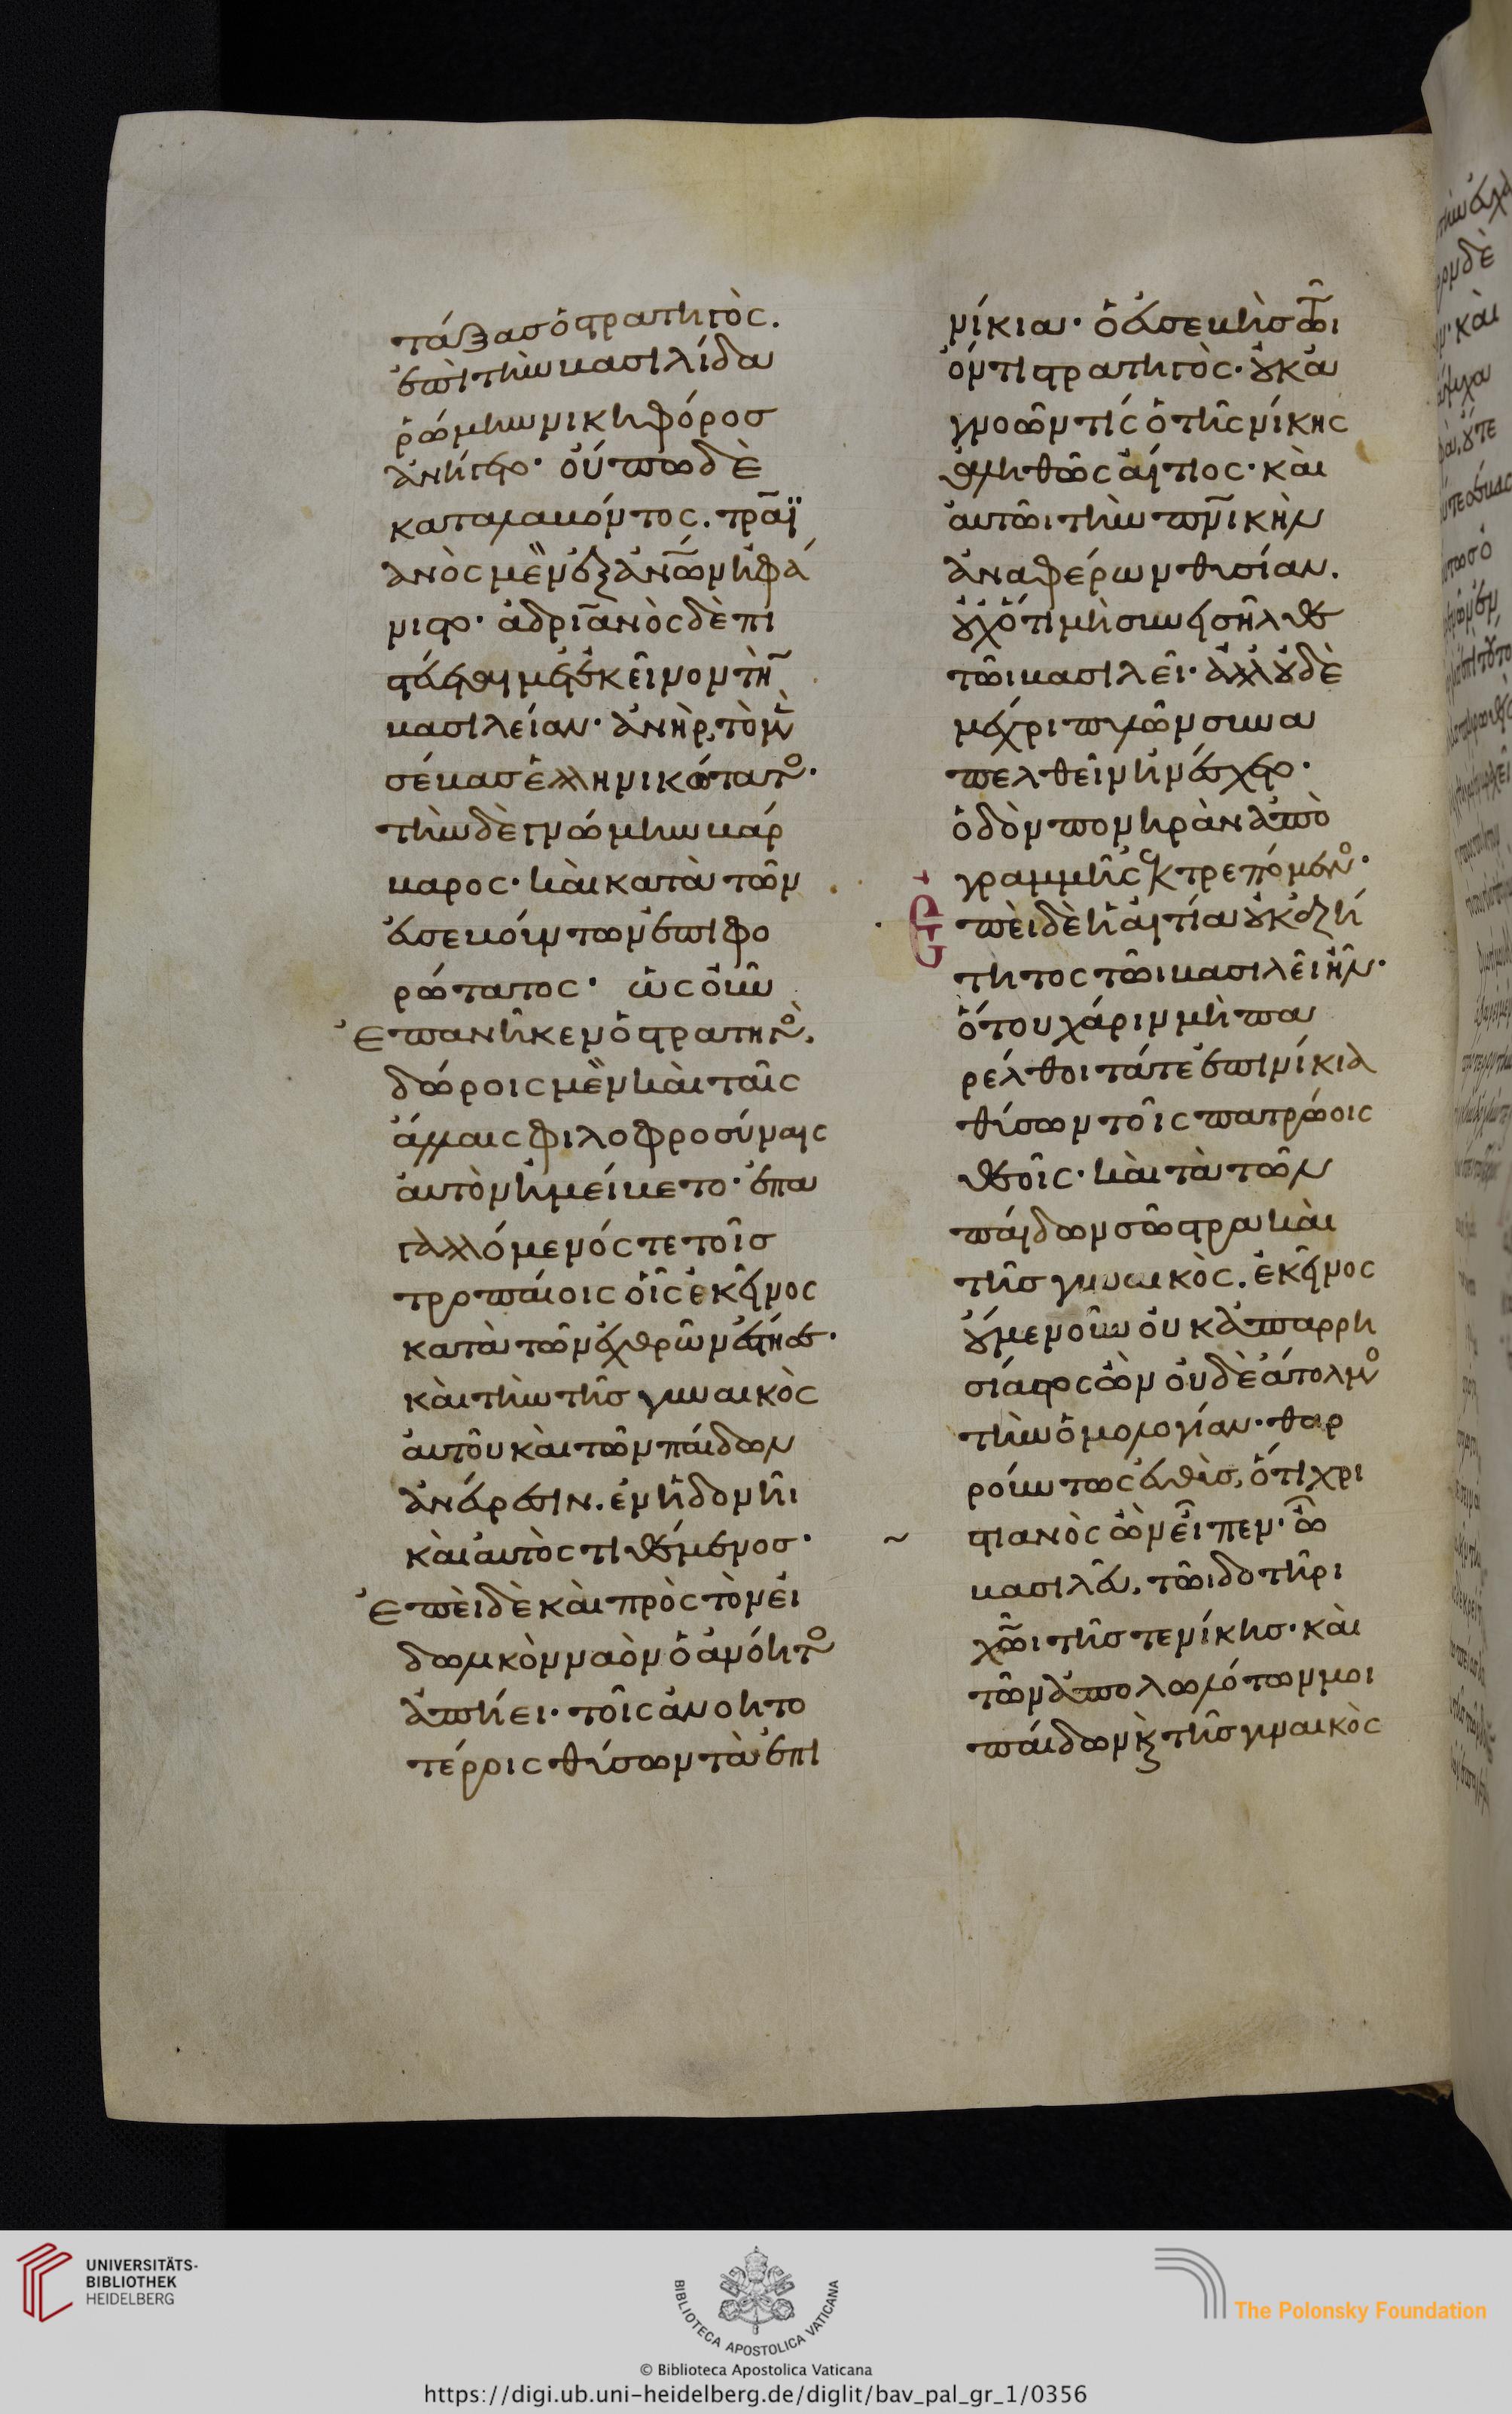 τάξας ὁ στρατηγὸς.
ἐπὶ τὴν βασιλίδα
ῥώμην νικηφόρος
ἀνήγετο· οὔπω δὲ
καταλαβόντος. τραϊ
ανὸς μὲν ἐξ ἀνων ἠφά
νιστο· ἀδριανὸς δὲ πι
στεύεται μετ' ἐκεῖνον τὴν
βασιλείαν· ἀνὴρ, τὸ μὲν
σέβας ἑλληνικώτατος·
τὴν δὲ γνώμην βάρ
βαρος· καὶ κατὰ τῶν
εὐσεβούντων ἐπιφο
ρώτατος· ὡς οὖν
Ἐπανῆκεν ὁ στρατηγὸς.
δώροις μὲν καὶ ταῖς
ἄλλαις φιλοφροσύναις
αὐτὸν ἠμείβετο· ἐπα
γαλλόμενός τε τοῖς
τροπαίοις οἷς ἐκεῖνος
κατὰ τῶν ἐχθρῶν ἔστησε·
καὶ τὴν τῆς γυναικὸς
αὐτοῦ καὶ τῶν παίδων
ἀνεύρεσιν. ἐν ἡδονῆι
καὶ αὐτὸς τιθέμενος·
Ἐπεὶ δὲ καὶ πρὸς τὸν εἰ
δωλικὸν ναὸν ὁ ἀνόητος
ἀπήιει· τοῖς ἀνοητο
τέροις θύσων τὰ ἐπι
νίκια· ὁ εὐσεβὴς τῶι
ὄντι στρατηγὸς· οὐκ ἀ
γνοῶν τίς ὁ τῆς νίκης
ἀληθῶς αἴτιος· καὶ
αὐτῶι τὴν πνικὴν
ἀναφέρων θυσίαν.
οὐχ ὅτι μὴ συνεισῆλθε
τῶι βασιλεῖ· ἀλλ' οὐδὲ
μέχρι πυλῶν συνα
πελθεῖν ἠνέσχετο·
ὁδὸν πονηρὰν ἀπὸ
γραμμῆς ἐκτρεπόμενος·
Ἐπεὶ δὲ ἡ αἰτία οὐκ ἐζή
τητος τῶι βασιλεῖ ἦν·
ὅτου χάριν μὴ πα
ρέλθοι τά τε ἐπινίκια
θύσων τοῖς πατρώοις
θεοῖς· καὶ τὰ τῶν
παίδων σῶστρα καὶ
τῆς γυναικὸς. ἐκεῖνος
οὐ μενοῦν οὐκ ἀπαρρη
σίαστος ὢν οὐδὲ ἄτολμος
τὴν ὁμολογίαν· θαρ
ρούντως εὐθὺς, ὅτι χρι
στιανὸς ὢν εἶπεν· ὦ
βασιλεῦ, τῶι δοτῆρι
χῶι τῆς τε νίκης· καὶ
τῶν ἀπολωλότων μοι
παίδων κ τῆς γυναικὸς
UNIVERSITÄTS-
BIBLIOTHEK
HEIDELBERG
BIBLIOTECA APOSTOLICA VATICANA
The Polonsky Foundation
© Biblioteca Apostolica Vaticana
https://digi.ub.uni-heidelberg.de/diglit/bav_pal_gr_1/0356